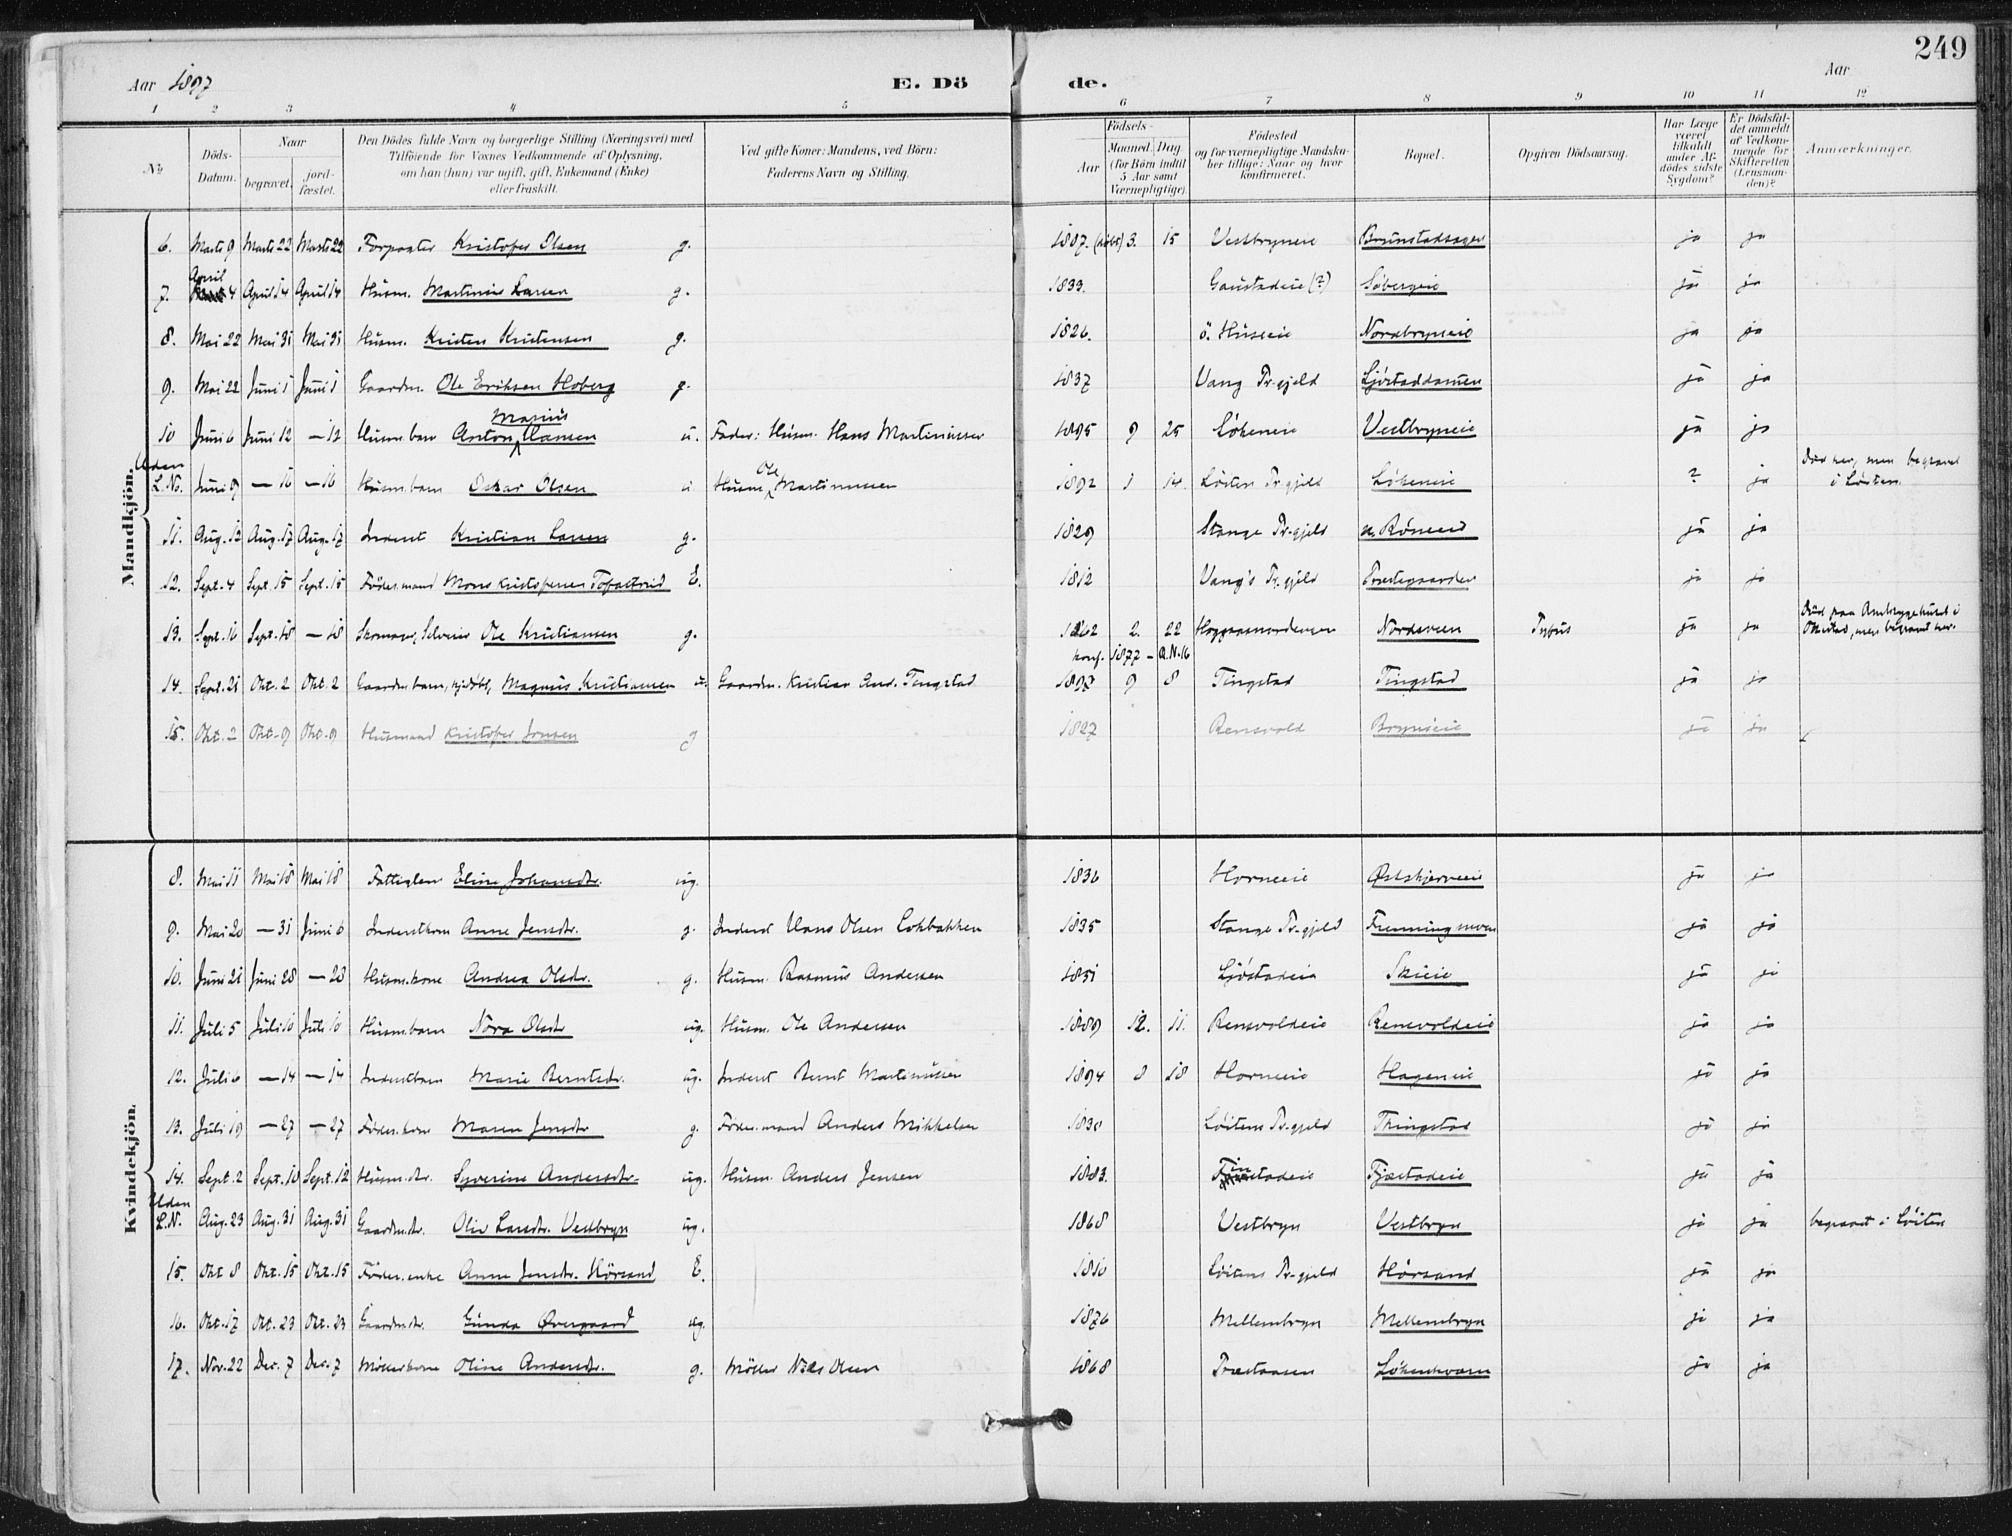 249
Aar 1897 E. Dö de. Aar
1 2 3 4 5 6 7 8 9 10 11 12
№ Döds-Datum. Naar begravet. jordfæstet. Den Dödes fulde Navn og borgerlige Stilling (Næringsvei) med Tilföiende for Voxnes Vedkommende af Oplysning, om han (hun) var ugift, gift, Enkemand (Enke) eller fraskilt. Ved gifte Koner: Mandens, ved Börn: Faderens Navn og Stilling. Födsels- Aar Maaned. Dag (for Börn indtil 5 Aar samt Værnepligtige). Födested og for værnepligtige Mandskaber tillige: Naar og hvor konfirmeret. Bopæl. Opgiven Dödsaarsag. Har Læge været tilkaldt under Afdödes sidste Sygdom? Er Dödsfaldet anmeldt af Vedkommende for Skifteretten (Lensmanden)? Anmærkninger.
Mandkjön.
6. Marts 9 Marts 22 Marts 22 Forpagter Kristofer Olsen g. 3. 15 Vestbryneie ja ja
7. April 4 April 14 April 14 Husm. Martinus Larsen g. 1833. Gaustadeie (?) Sóbergeie ja ja
8. Mai 22 Mai 31 Mai 31 Husm. Kristen Kristensen g. 1826. ö. Huseeie Nordbryneie ja ja
9. Mai 22 Juni 1 Juni 1 Gaardm. Ole Eriksen Hoberg g. 1837 Vang Pr.gjeld Ljöstaddamen ja ja
10 Juni 6 Juni 12 — 12 Husm. barn Anton Marius Hansen u. Fader: Husm. Hans Martinussen 1895 9 25 Lökeneie Vestbryneie ja ja
Uden L. No. Juni 9 — 16 — 16 Husm. barn Oskar Olsen u Husm. Ole Martinussen 1892 1 14. Löiten Pr.gjeld Lökeneie ? ja Död her, men begravet i Löiten.
11. Aug. 12 Aug. 17 Aug. 17 Inderst Kristian Larsen g. 1829 Stange Pr.gjeld ja ja
12. Sept. 4 Sept. 15 Sept. 15 Föder.mand Mons Kristofersen E. 1812 Vang's Pr.gjeld Præstegaarden ja ja
13. Sept. 16 Sept. 18 — 18 Skomager, Selveier Ole Kristiansen g. 1862 2. 22 Nordsveen Tyfus ja ja Död paa i Ottestad, men begravet her.
konf. 1877 — A.N. 16
14. Sept. 21 Okt. 2 Okt. 2 Gaardm. barn, hjdöbt, Magnus Kristiansen u. Gaardm. Kristian And. Tingstad 1897 9 8 Tingstad Tingstad ja ja
15. Okt. 2 Okt. 9 Okt. 9 Husmand Kristofer Jonsen g 1827 Rensvold Brynseie ja ja
Kvindekjön.
8. Mai 11 Mai 18 Mai 18 Fattiglem Eline Johansdtr. ug. 1836 Horneeie Østskjerveeie ja ja
9. Mai 20 — 31 Juni 6 Inderstkone Anne Jensdtr. g. Inderst Hans Olsen 1835 Stange Pr.gjeld ja ja
10. Juni 21 Juni 28 — 28 Husm.kone Andrea Olsdtr. g. Husm. Rasmus Andersen 1851 Ljöstadeie Skieie ja ja
11. Juli 5 Juli 10 Juli 10 Husm.barn Nora Olsdtr ug. Husm. Ole Andersen 1889 12. 11. Rensvoldeie Rensvoldeie ja ja
12. Juli 6 — 14 — 14 Inderstbarn Marie Berntsdtr. ug. Inderst Bernt Martinussen 1894 8 18 Horneeie Hageneie ja ja
13. Juli 19 — 27 — 27 Föder.kone Maren Jensdtr g. Föder.mand Anders Mikkelsen 1830 Löitens Pr.gjeld Thingstad ja ja
14. Sept. 2 Sept. 10 Sept. 12 Husm.dtr. Syverine Andersdtr. ug. Husm. Anders Jensen 1883. Fjæstadeie ja ja
Uden L.N. Aug. 23 Aug. 31 Aug. 31 Gaardm.dtr. Oliv Larsdtr. Vestbryn ug. 1868 Vestbryn Vestbryn ja ja begravet i Löiten
15. Okt 8 Okt. 15 Okt. 15 Föder.enke Anne Jensdtr. Hörsand E. 1810 Löitens Pr.gjeld Hörsand ja ja
16. Okt. 17 Okt. 23 Okt. 23 Gaardm.dtr. Gunda Övergaard ug. 1876 Mellembryn Mellembryn ja ja
17. Nov. 22 Dec. 7 Dec. 7 Möllerkone Oline Andersdtr. g. Möller Nils Olsen 1868 Præstaasen Lökenkværn ja ja